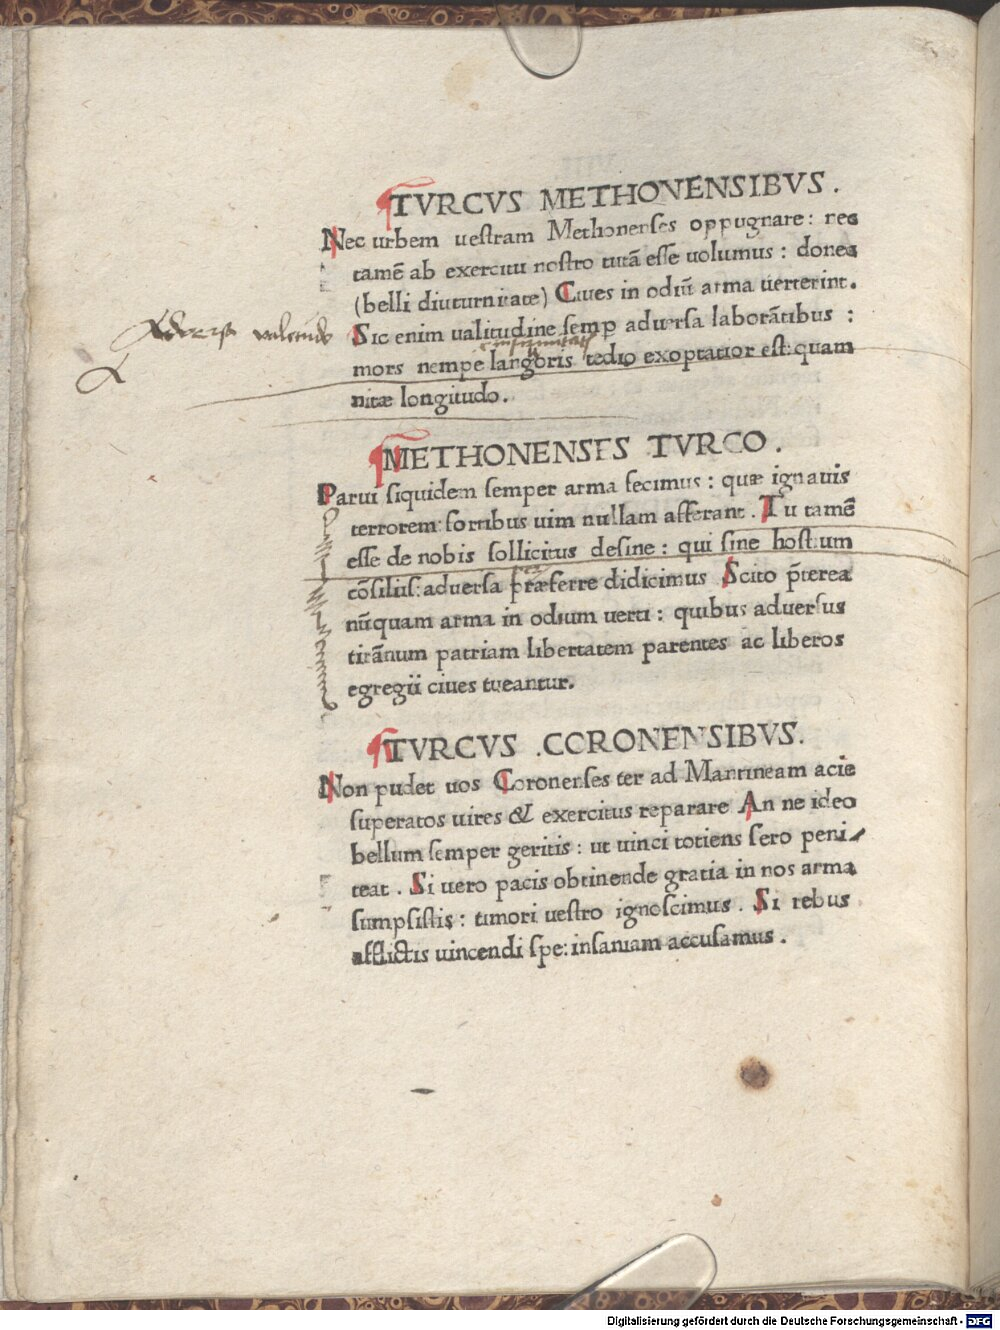 TVRCVS METHONENSIBVS.
Nec urbem uestram Methonenses oppugnare: rec
tamē ab exercitu nostro tutā esse uolumus: donec
(belli diuturnitate) Ciues in odiū arma uerterint.
Aduersa valetudo
Sic enim ualitudine semp aduersa laborātibus:
mors nempe langoris tedio exoptatior est: quam
uitæ longitudo.
METHONENSES TVRCO.
Parui siquidem semper arma fecimus: quæ ignauis
terrorem: fortibus uim nullam afferant. Tu tamē
esse de nobis sollicitus desine: qui sine hostium
cōsiliis: aduersa præferre didicimus Scito p̄terea
nūquam arma in odium uerti: quibus aduersus
tirānum patriam libertatem parentes ac liberos
egregii ciues tueantur.
TVRCVS CORONENSIBVS.
Non pudet uos Coronenses ter ad Mantineam acie
superatos uires & exercitus reparare An ne ideo
bellum semper geritis: ut uinci totiens sero peni
teat. Si uero pacis obtinende gratia in nos arma
sumpsistis: timori uestro ignoscimus. Si rebus
afflictis uincendi spe: insaniam accusamus.
Digitalisierung gefördert durch die Deutsche Forschungsgemeinschaft - DFG